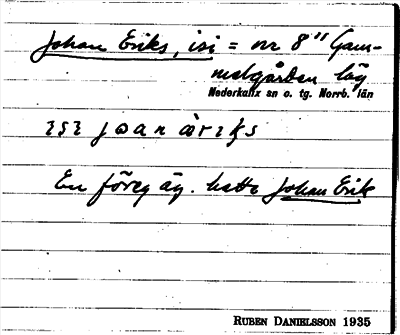 Johan Eriks, isi = nr 8" Gam-
melgården läg
Nederkalix sn o. tg. Norrb. län
En föreg äg. hette Johan Erik
RUBEN DANIELSSON 1935